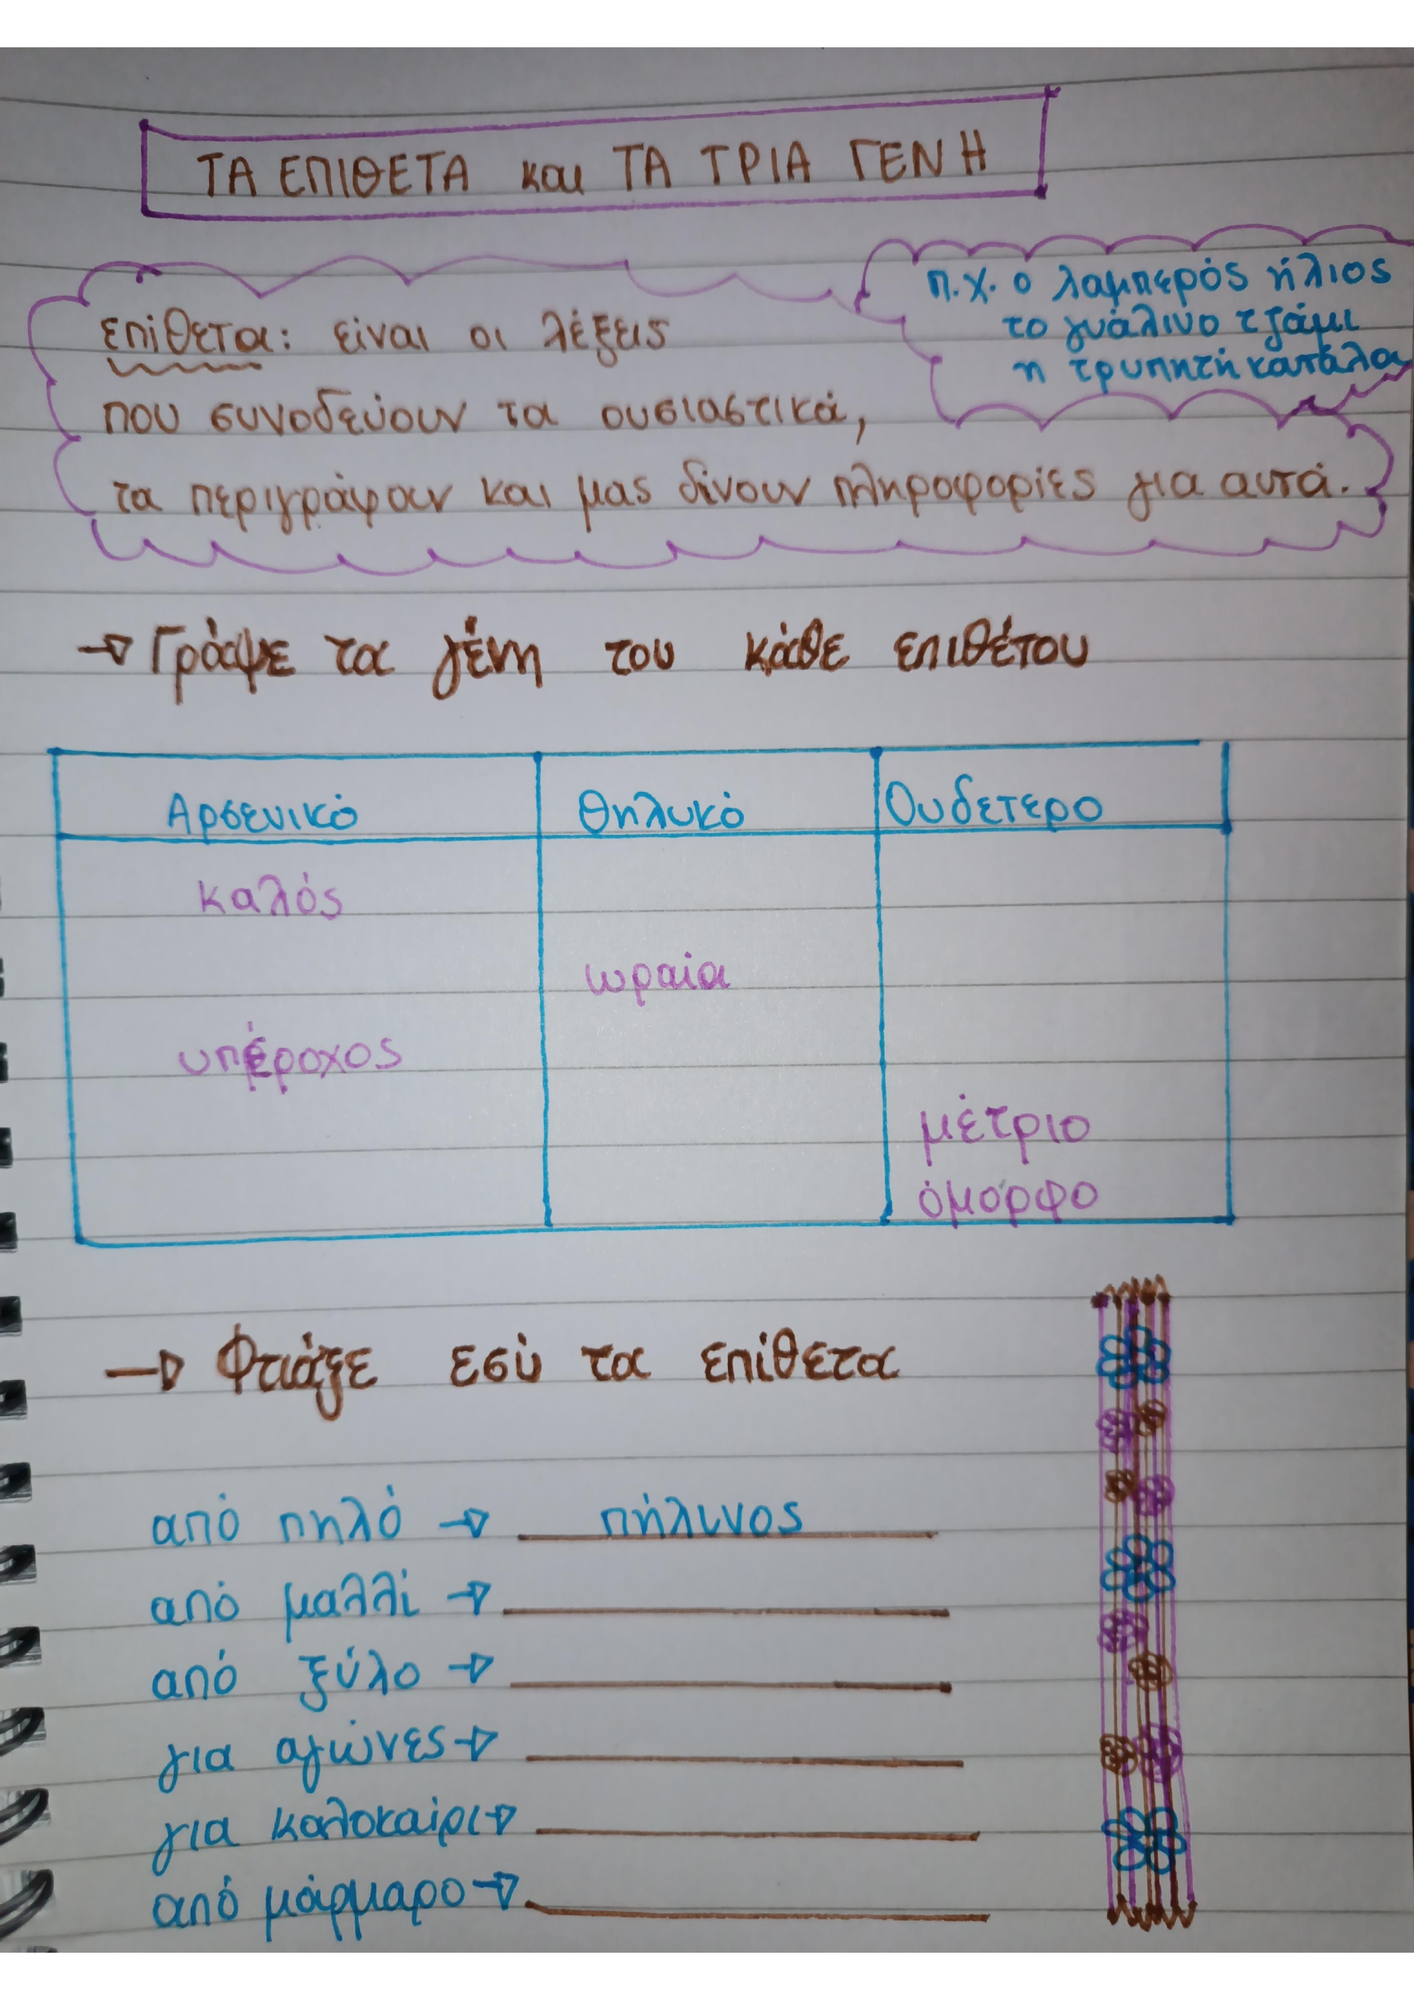 ΤΑ ΕΠΙΘΕΤΑ και ΤΑ ΤΡΙΑ ΓΕΝΗ
π.χ. ο λαμπερός ήλιος
το γυάλινο τζάμι
η τρυπητή κατάλα
επίθετα: είναι οι λέξεις
που συνοδεύουν τα ουσιαστικά,
τα περιγράφουν και μας δίνουν πληροφορίες για αυτά.
Γράψε τα γένη του κάθε επιθέτου
Αρσενικό Θηλυκό Ουδετερο
καλός
ωραία
υπέροχος
μέτριο
όμορφο
Φτιάξε εσύ τα επίθετα
από πηλό πήλινος
από μαλλί
από ξύλο
για αγώνες
για καλοκαίρι
από μάρμαρο